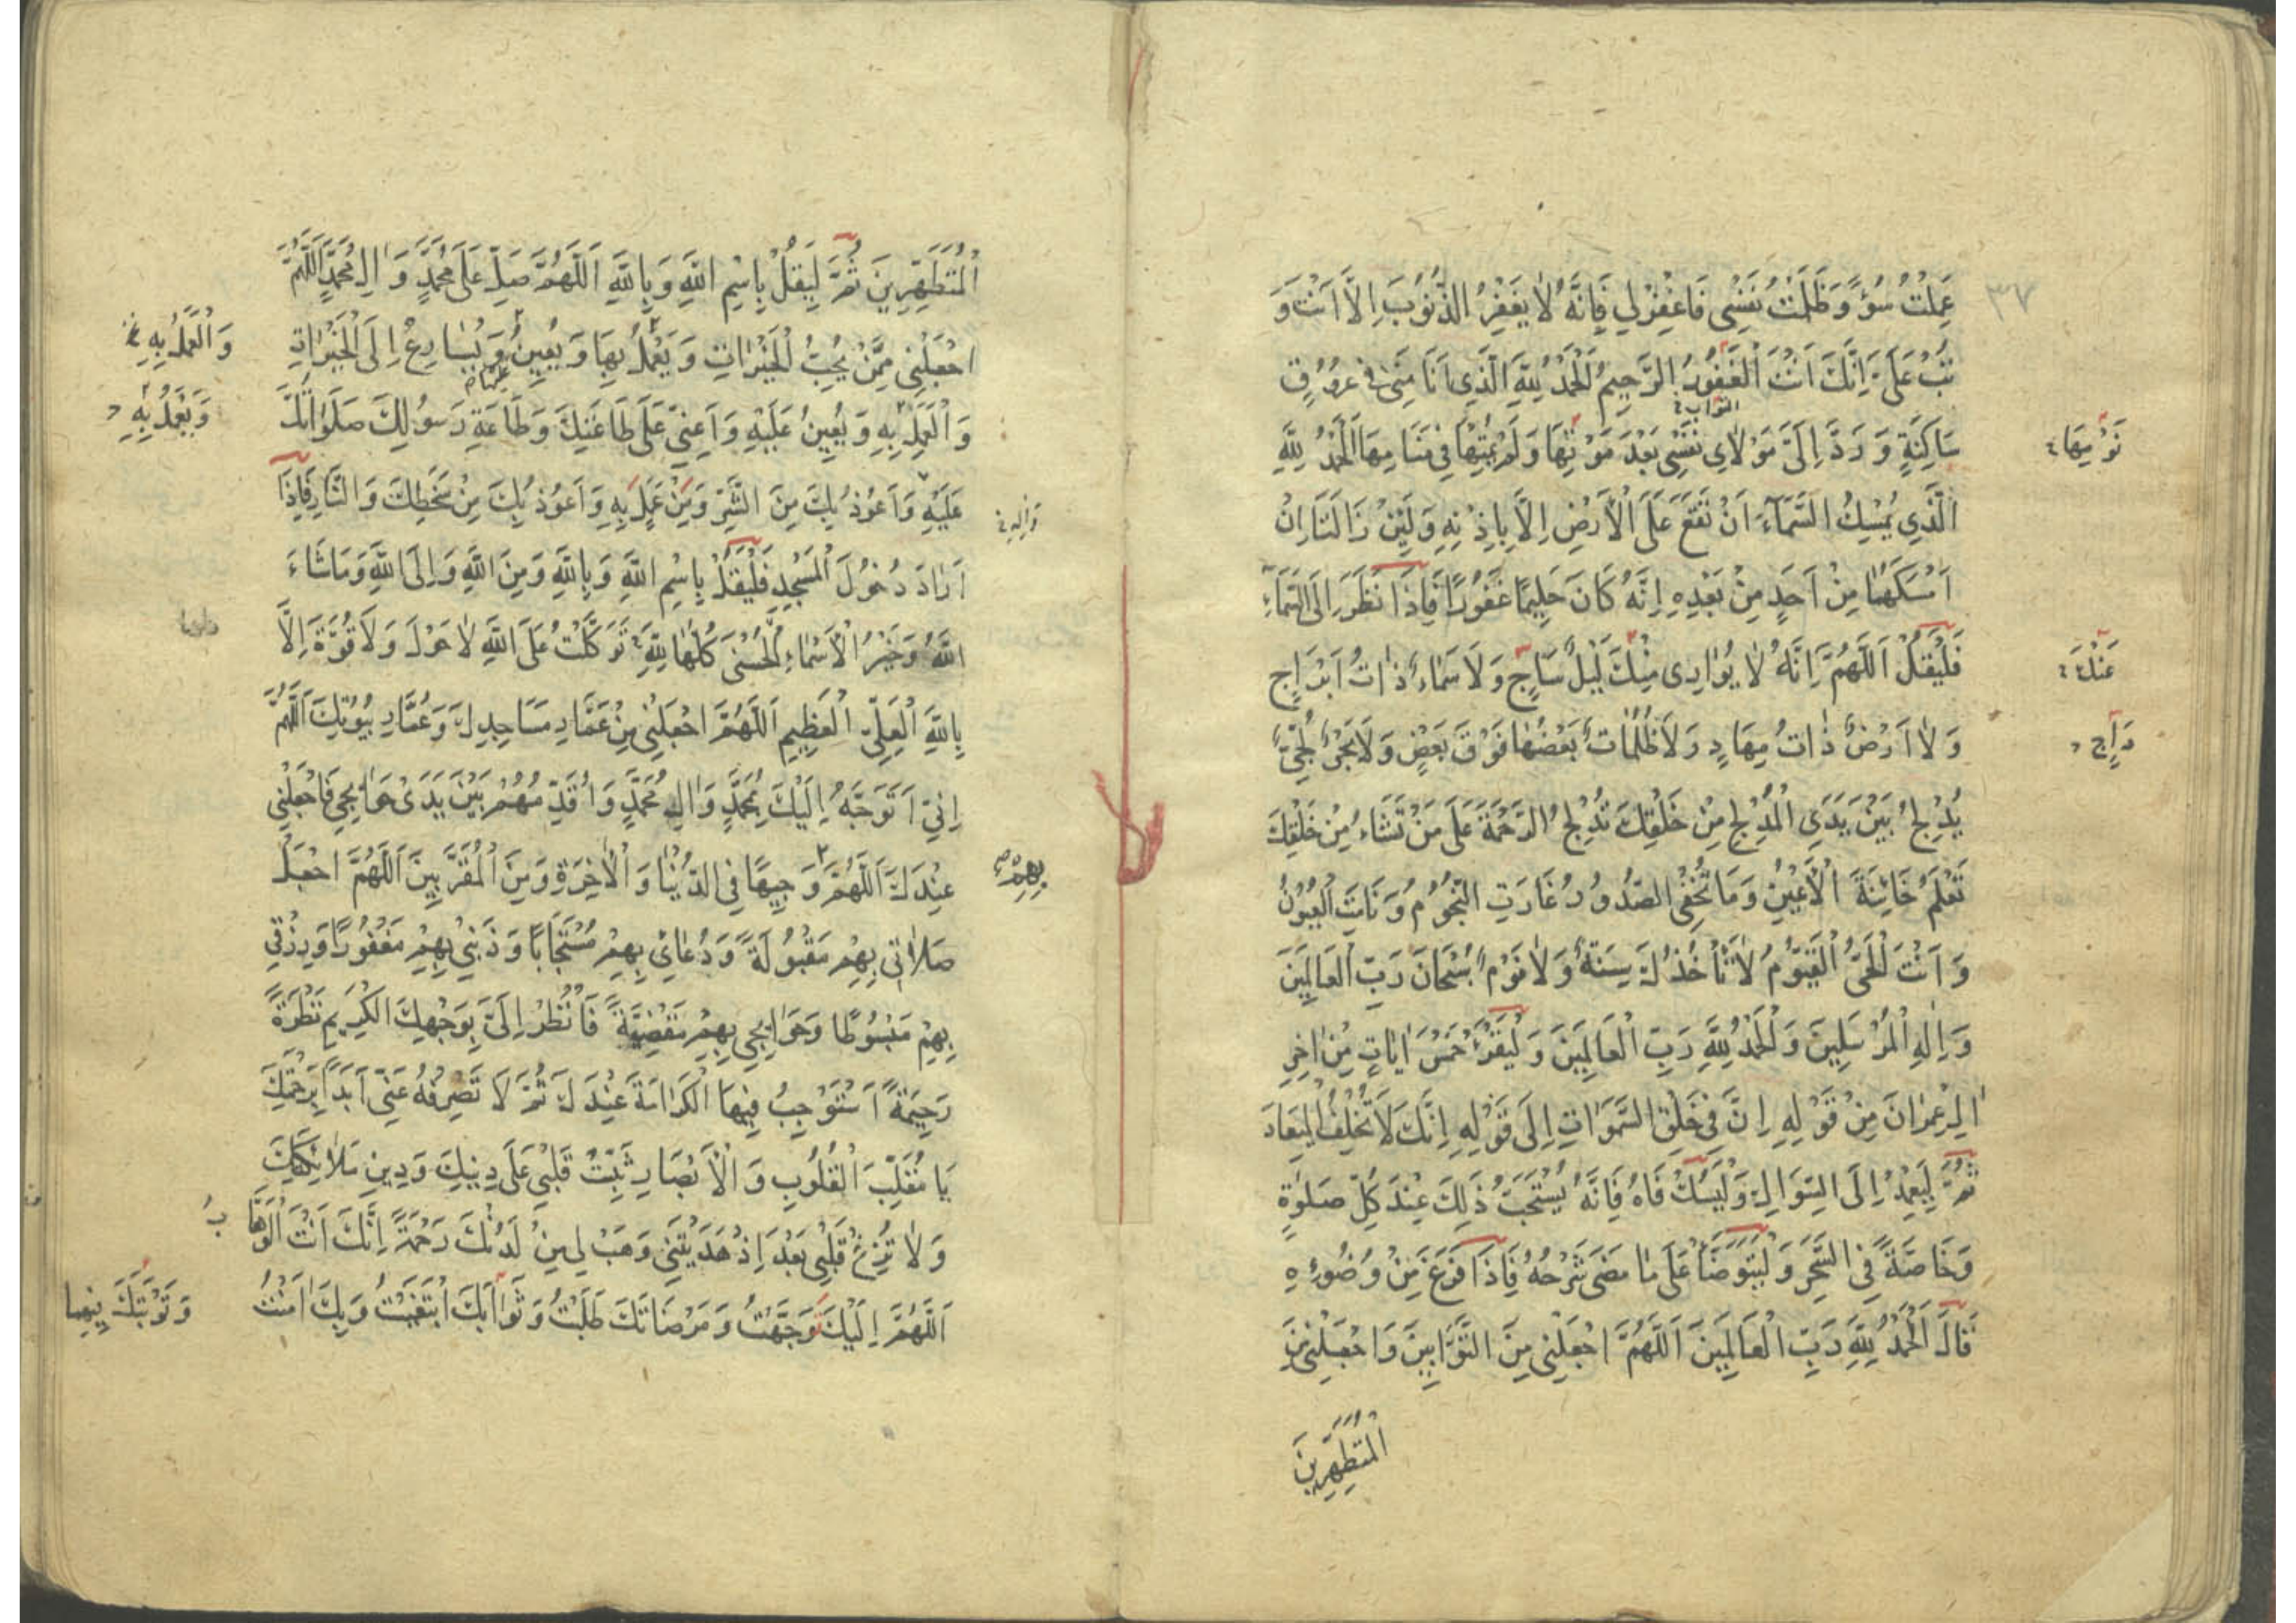 ٣٧
عَمِلْتُ سُوْءً وَظَلَمْتُ نَفْسِى فَاغْفِرْلِي فَإِنَّهُ لاٰيَغْفِرُ الذُّنُوبَ اِلاَّ اَنْتَ وَ
تُبْ عَلَىَّ اِنَّكَ اَنْتَ الْغَفُورُ الرَّحِيمُ اَلْحَمْدُ لِلّٰهِ الَّذِى اَنَامَنِى فِى عُرُوقٍ
التواب
سَاكِنَةٍ وَ رَدَّ اِلَىَّ مَوْلاٰىِ نَفْسِى بَعْدَ مَوْتِهَا وَلَمْ يُمِتْهَا فِى مَنَامِهَا اَلْحَمْدُ لِلّٰهِ
نَوْمِهَا
الَّذِي يُمْسِكُ السَّمَآءَ اَنْ تَقَعَ عَلَى الْاَرْضِ اِلاَّ بِاِذْنِهِ وَلَئِنْ زَالَتَا اِنْ
اَمْسَكَهُمٰا مِنْ اَحَدٍ مِنْ بَعْدِهِ اِنَّهُ كَانَ حَلِيمًا غَفُورًا فَاِذَا نَظَرَ اِلَى السَّمَآءِ
فَلْيَقُلْ اَللّٰهُمَّ اِنَّهُ لاٰ يُوٰارِى مِنْكَ لَيْلٌ سَاجٍ وَلاَ سَمٰاءٌ ذٰاتُ اَبْرَاجٍ
عَنْكَ
وَ لاٰ اَرْضٌ ذٰاتُ مِهَادٍ وَلاَ ظُلُمٰاتٌ بَعْضُهٰا فَوْقَ بَعْضٍ وَلاَ بَحْرٌ لُجِّىٌّ
دَاجٍ
يُدْلِجُ بَيْنَ يَدَىِ الْمُدْلِجِ مِنْ خَلْقِكَ تُدْلِجُ الرَّحْمَةَ عَلَى مَنْ تَشَاءُ مِنْ خَلْقِكَ
تَعْلَمُ خَائِنَةَ الْاَعْيُنِ وَمَا تُخْفِى الصُّدُورُ غَارَتِ النُّجُومُ وَنَامَتِ الْعُيُونُ
وَ اَنْتَ الْحَىُّ الْقَيُّومُ لاٰ تَأْخُذُكَ سِنَةٌ وَلاٰ نَوْمٌ سُبْحَانَ رَبِّ الْعَالَمِينَ
وَ اِلٰهِ الْمُرْسَلِينَ وَالْحَمْدُ لِلّٰهِ رَبِّ الْعَالَمِينَ وَلْيَقْرَأْ خَمْسَ اٰيَاتٍ مِنْ اٰخِرِ
اٰلِ عِمْرٰانَ مِنْ قَوْلِهِ اِنَّ فِى خَلْقِ السَّمَوَاتِ اِلَى قَوْلِهِ اِنَّكَ لاَ تُخْلِفُ الْمِيعَادَ
ثُمَّ لِيَعْمِدْ اِلَى السِّوَاكِ وَلْيَسُكْ فَاهُ فَاِنَّهُ يُسْتَحَبُّ ذَلِكَ عِنْدَ كُلِّ صَلٰوةٍ
وَخَاصَّةً فِى السَّحَرِ وَلْيَتَوَضَّأْ عَلَى مٰا مَضَى شَرْحُهُ فَاِذَا فَرَغَ مِنْ وُضُوئِهِ
قَالَ اَلْحَمْدُ لِلّٰهِ رَبِّ الْعَالَمِينَ اَللّٰهُمَّ اجْعَلْنِى مِنَ التَّوَّابِينَ وَاجْعَلْنِى مِنَ
الْمُتَطَهِّرِينَ
الْمُتَطَهِّرِينَ ثُمَّ لِيَقُلْ بِاسْمِ اللّٰهِ وَبِاللّٰهِ اَللّٰهُمَّ صَلِّ عَلَى مُحَمَّدٍ وَ اٰلِ مُحَمَّدٍ اَللّٰهُمَّ
اجْعَلْنِى مِمَّنْ يُحِبُّ الْخَيْرَاتِ وَ يَعْمَلُ بِهَا وَ يُعِينُ وَ يُسٰارِعُ اِلَى الْخَيْرَاتِ
وَالْعَمَلُ بِهِ
عليها
وَ الْعَمَلِ بِهِ وَ يُعِينُ عَلَيْهِ وَ اَعِنِّى عَلَى طَاعَتِكَ وَطَاعَةِ رَسُولِكَ صَلَوٰاتُكَ
وَيَعْمَلُ بِهِ
عَلَيْهِ وَ اَعُوذُ بِكَ مِنَ الشَّرِّ وَ مِنْ عَمَلٍ بِهِ وَ اَعُوذُ بِكَ مِنْ سَخَطِكَ وَ النَّارِ فَاِذَا
وَ اٰلِهِ
اَرٰادَ دُخُولَ الْمَسْجِدِ فَلْيَقُلْ بِاسْمِ اللّٰهِ وَ بِاللّٰهِ وَ مِنَ اللّٰهِ وَ اِلَى اللّٰهِ وَ مَا شَاءَ
اللّٰهُ وَ خَيْرُ الْاَسْمَاءِ الْحُسْنَى كُلُّهَا لِلّٰهِ تَوَكَّلْتُ عَلَى اللّٰهِ لاٰ حَوْلَ وَ لاَ قُوَّةَ اِلاَّ
بِاللّٰهِ الْعَلِىِّ الْعَظِيمِ اَللّٰهُمَّ اجْعَلْنِى مِنْ عُمَّارِ مَسَاجِدِكَ وَ عُمَّارِ بُيُوتِكَ اَللّٰهُمَّ
اِنِّى اَتَوَجَّهُ اِلَيْكَ بِمُحَمَّدٍ وَ اٰلِ مُحَمَّدٍ وَ اُقَدِّمُهُمْ بَيْنَ يَدَىْ حَوٰائِجِى فَاجْعَلْنِى
عِنْدَكَ اَللّٰهُمَّ وَجِيهًا فِى الدُّنْيٰا وَ الْاٰخِرَةِ وَ مِنَ الْمُقَرَّبِينَ اَللّٰهُمَّ اجْعَلْ
بِهِمْ
صَلاٰتِى بِهِمْ مَقْبُولَةً وَ دُعٰائِى بِهِمْ مُسْتَجَابًا وَ ذَنْبِى بِهِمْ مَغْفُورًا وَ رِزْقِى
بِهِمْ مَبْسُوطًا وَ حَوٰائِجِى بِهِمْ مَقْضِيَّةً فَانْظُرْ اِلَىَّ بِوَجْهِكَ الْكَرِيمِ نَظْرَةً
رَحِيمَةً اَسْتَوْجِبُ فِيهَا الْكَرَامَةَ عِنْدَكَ ثُمَّ لاَ تَصْرِفْهُ عَنِّى اَبَدًا بِرَحْمَتِكَ
يَا مُقَلِّبَ الْقُلُوبِ وَ الْاَبْصَارِ ثَبِّتْ قَلْبِى عَلَى دِينِكَ وَ دِينِ مَلاٰئِكَتِكَ
وَ لاٰ تُزِغْ قَلْبِى بَعْدَ اِذْ هَدَيْتَنِى وَ هَبْ لِى مِنْ لَدُنْكَ رَحْمَةً اِنَّكَ اَنْتَ الْوَهَّابُ
اَللّٰهُمَّ اِلَيْكَ تَوَجَّهْتُ وَ مَرْضَاتَكَ طَلَبْتُ وَ ثَوٰابَكَ ابْتَغَيْتُ وَ بِكَ اٰمَنْتُ